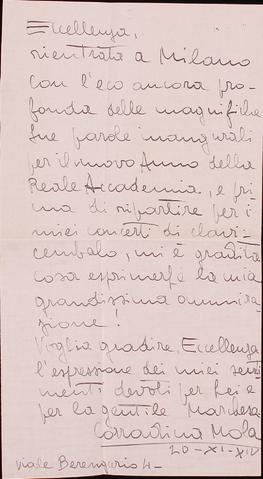 Eccellenza,
rientrata a Milano
con l'eco ancora pro-
fonda delle magnifiche
Sue parole inaugurali
per il nuovo Anno della
Reale Accademia, e pri-
ma di ripartire per i
miei concerti di clavi-
cembalo, mi è gradita
cosa esprimerLe la mia
grandissima ammira-
zione!
Voglia gradire, Eccellenza
l'espressione dei miei senti-
menti devoti per Lei e
per la gentile Marchesa.
Corradina Mola
20-XI-XIV
viale Berengario 4-